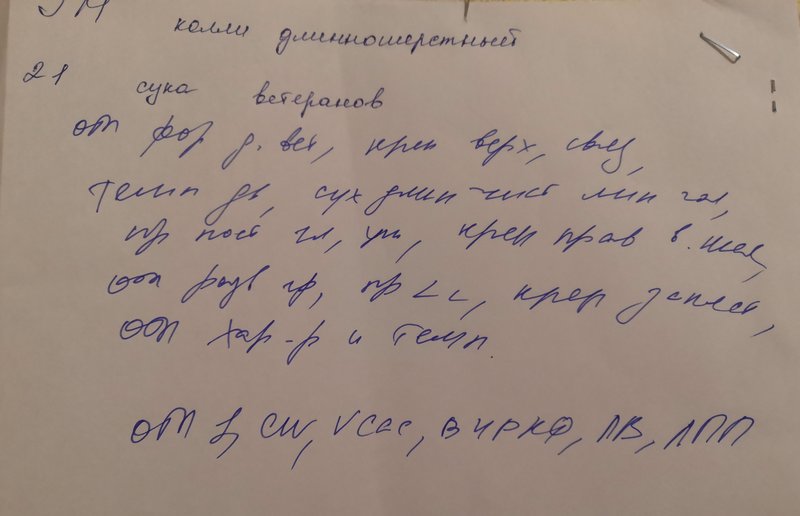 колли длинношерстный
21 сука ветеранов
отл фор д. вет, креп верх,
темп дв, сух длин чист лин гол,
пр пост гл, уш, креп прав в. шея,
отл разв гр, пр <<, креп запяст,
отл хар-р и темп.
отл 1, CW, VCAC, ВЧРКФ, ЛВ, ЛПП